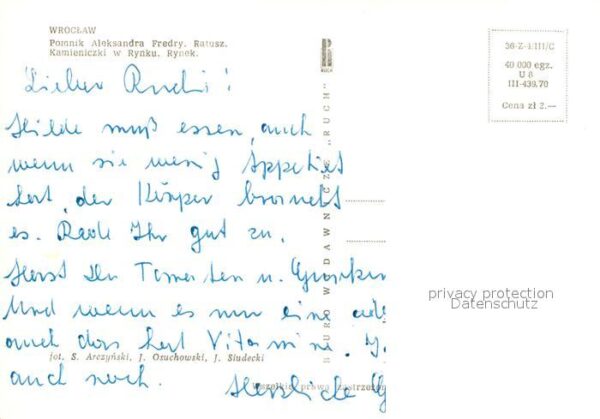 WROCŁAW
Pomnik Aleksandra Fredry. Ratusz.
Kamieniczki w Rynku. Rynek.
36-Z-4/III/C
40 000 egz.
U 8
III-439,70
Cena zł 2.—
RUCH
BIURO WYDAWNICZE „RUCH"
Lieber Rudi!
Hilde muß essen, auch
wenn sie wenig Appetiet
hat, der Körper braucht
es. Rede Ihr gut zu.
Hast Du Tomaten u. Gurken
Und wenn es nur eine
auch das hat Vitamine.
auch noch. Herzliche
fot. S. Arczyński, J. Osuchowski, J. Siudecki
Wszelkie prawa zastrzeżon
privacy protection
Datenschutz